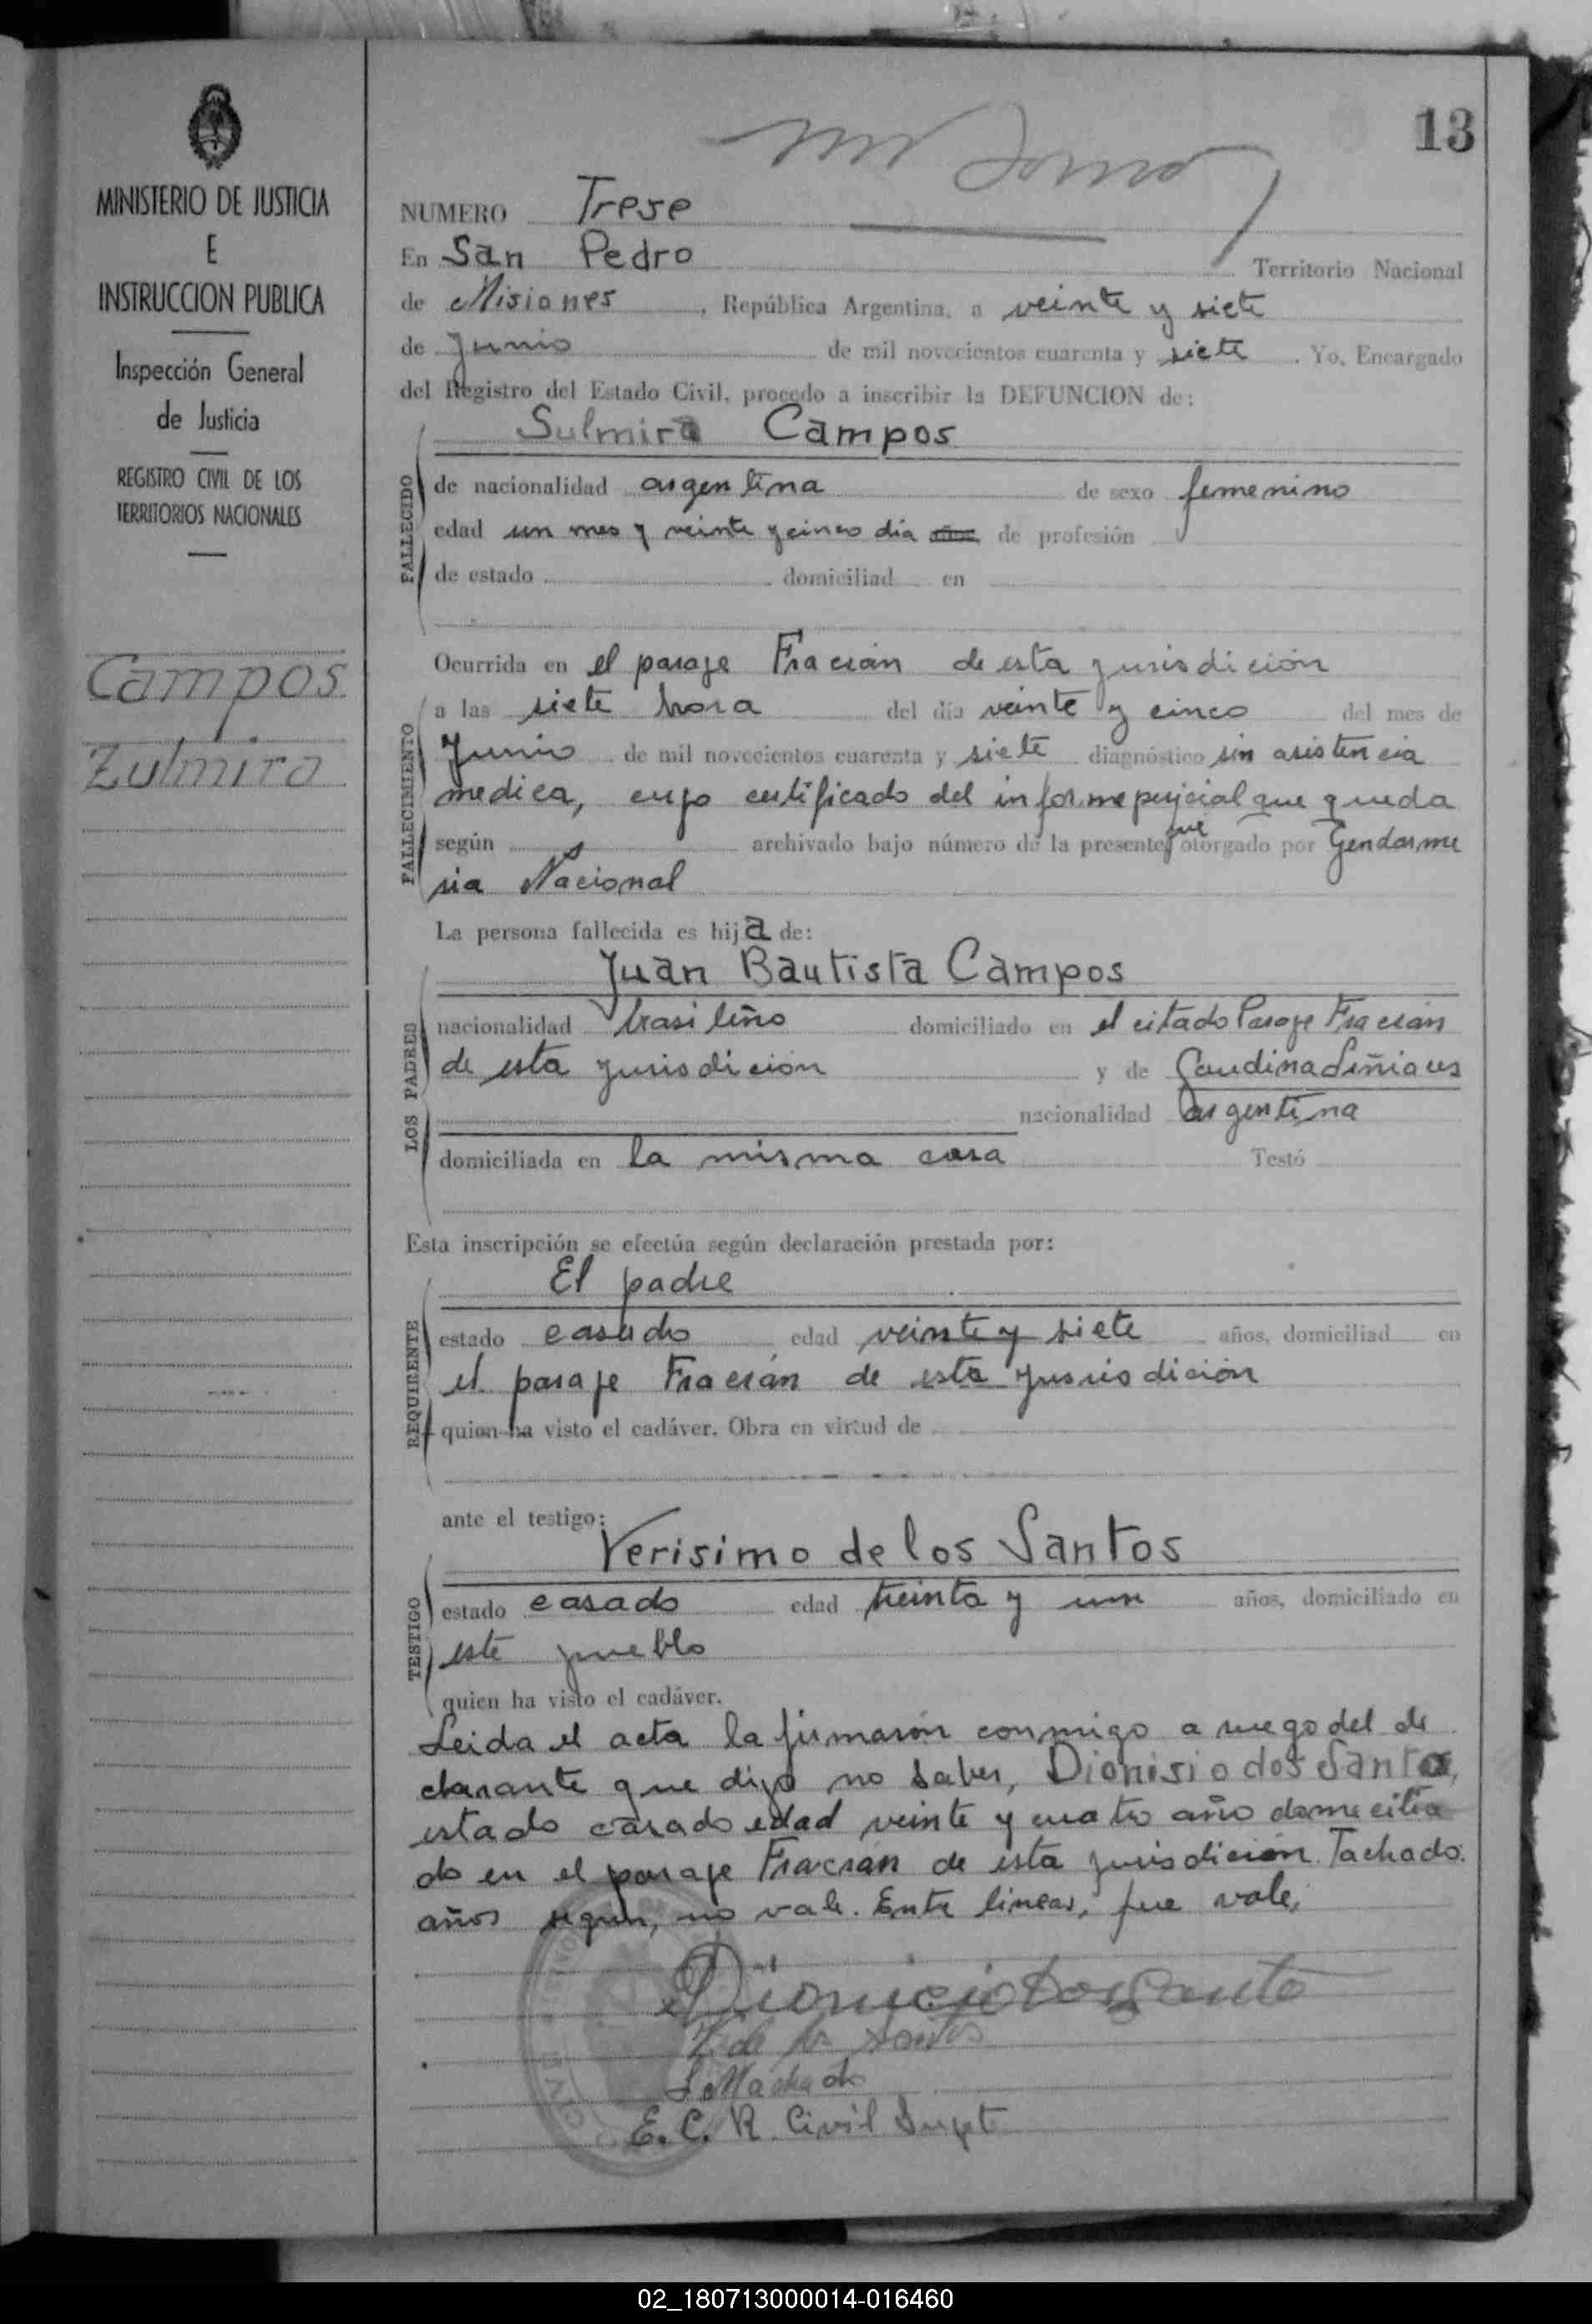 13
MINISTERIO DE JUSTICIA
E
INSTRUCCION PUBLICA
Inspección General
de Justicia
REGISTRO CIVIL DE LOS
TERRITORIOS NACIONALES
Campos
Zulmira
NUMERO Trese
En San Pedro Territorio Nacional
de Misiones, República Argentina, a veinte y siete
de Junio de mil novecientos cuarenta y siete. Yo, Encargado
del Registro del Estado Civil, procedo a inscribir la DEFUNCION de:
Sulmira Campos
FALLECIDO
de nacionalidad argentina de sexo femenino
edad un mes y veinte y cinco dia de profesión
de estado domiciliad en
Ocurrida en el paraje Fracrán de esta jurisdición
FALLECIMIENTO
a las siete hora del día veinte y cinco del mes de
Junio de mil novecientos cuarenta y siete diagnóstico sin asistencia
medica, cuyo certificado del informe que queda
según archivado bajo número de la presente fue otorgado por Gendarme
ria Nacional
La persona fallecida es hija de:
Juan Bautista Campos
LOS PADRES
nacionalidad brasileño domiciliado en el citado Paraje Fracrán
de esta jurisdición y de
nacionalidad argentina
domiciliada en la misma casa Testó
Esta inscripción se efectúa según declaración prestada por:
El padre
REQUIRENTE
estado casado edad veinte y siete años, domiciliad en
el paraje Fracrán de esta jusrisdición
quien ha visto el cadáver. Obra en virtud de
ante el testigo:
Verisimo de los Santos
TESTIGO
estado casado edad treinta y un años, domiciliado en
este pueblo
quien ha visto el cadáver.
Leida el acta la firmarón conmigo a ruego del de
clarante que dijo no saber, Dionisio dos Santos,
estado casado edad veinte y cuatro año domecilia
do en el paraje Fracrán de esta jurisdición. Tachado:
años según, no vale. Entre lineas, fue vale.
Dionicio Dos Santo
V. de los Santos
Machado
E. C. R. Civil Supt
02_180713000014-016460